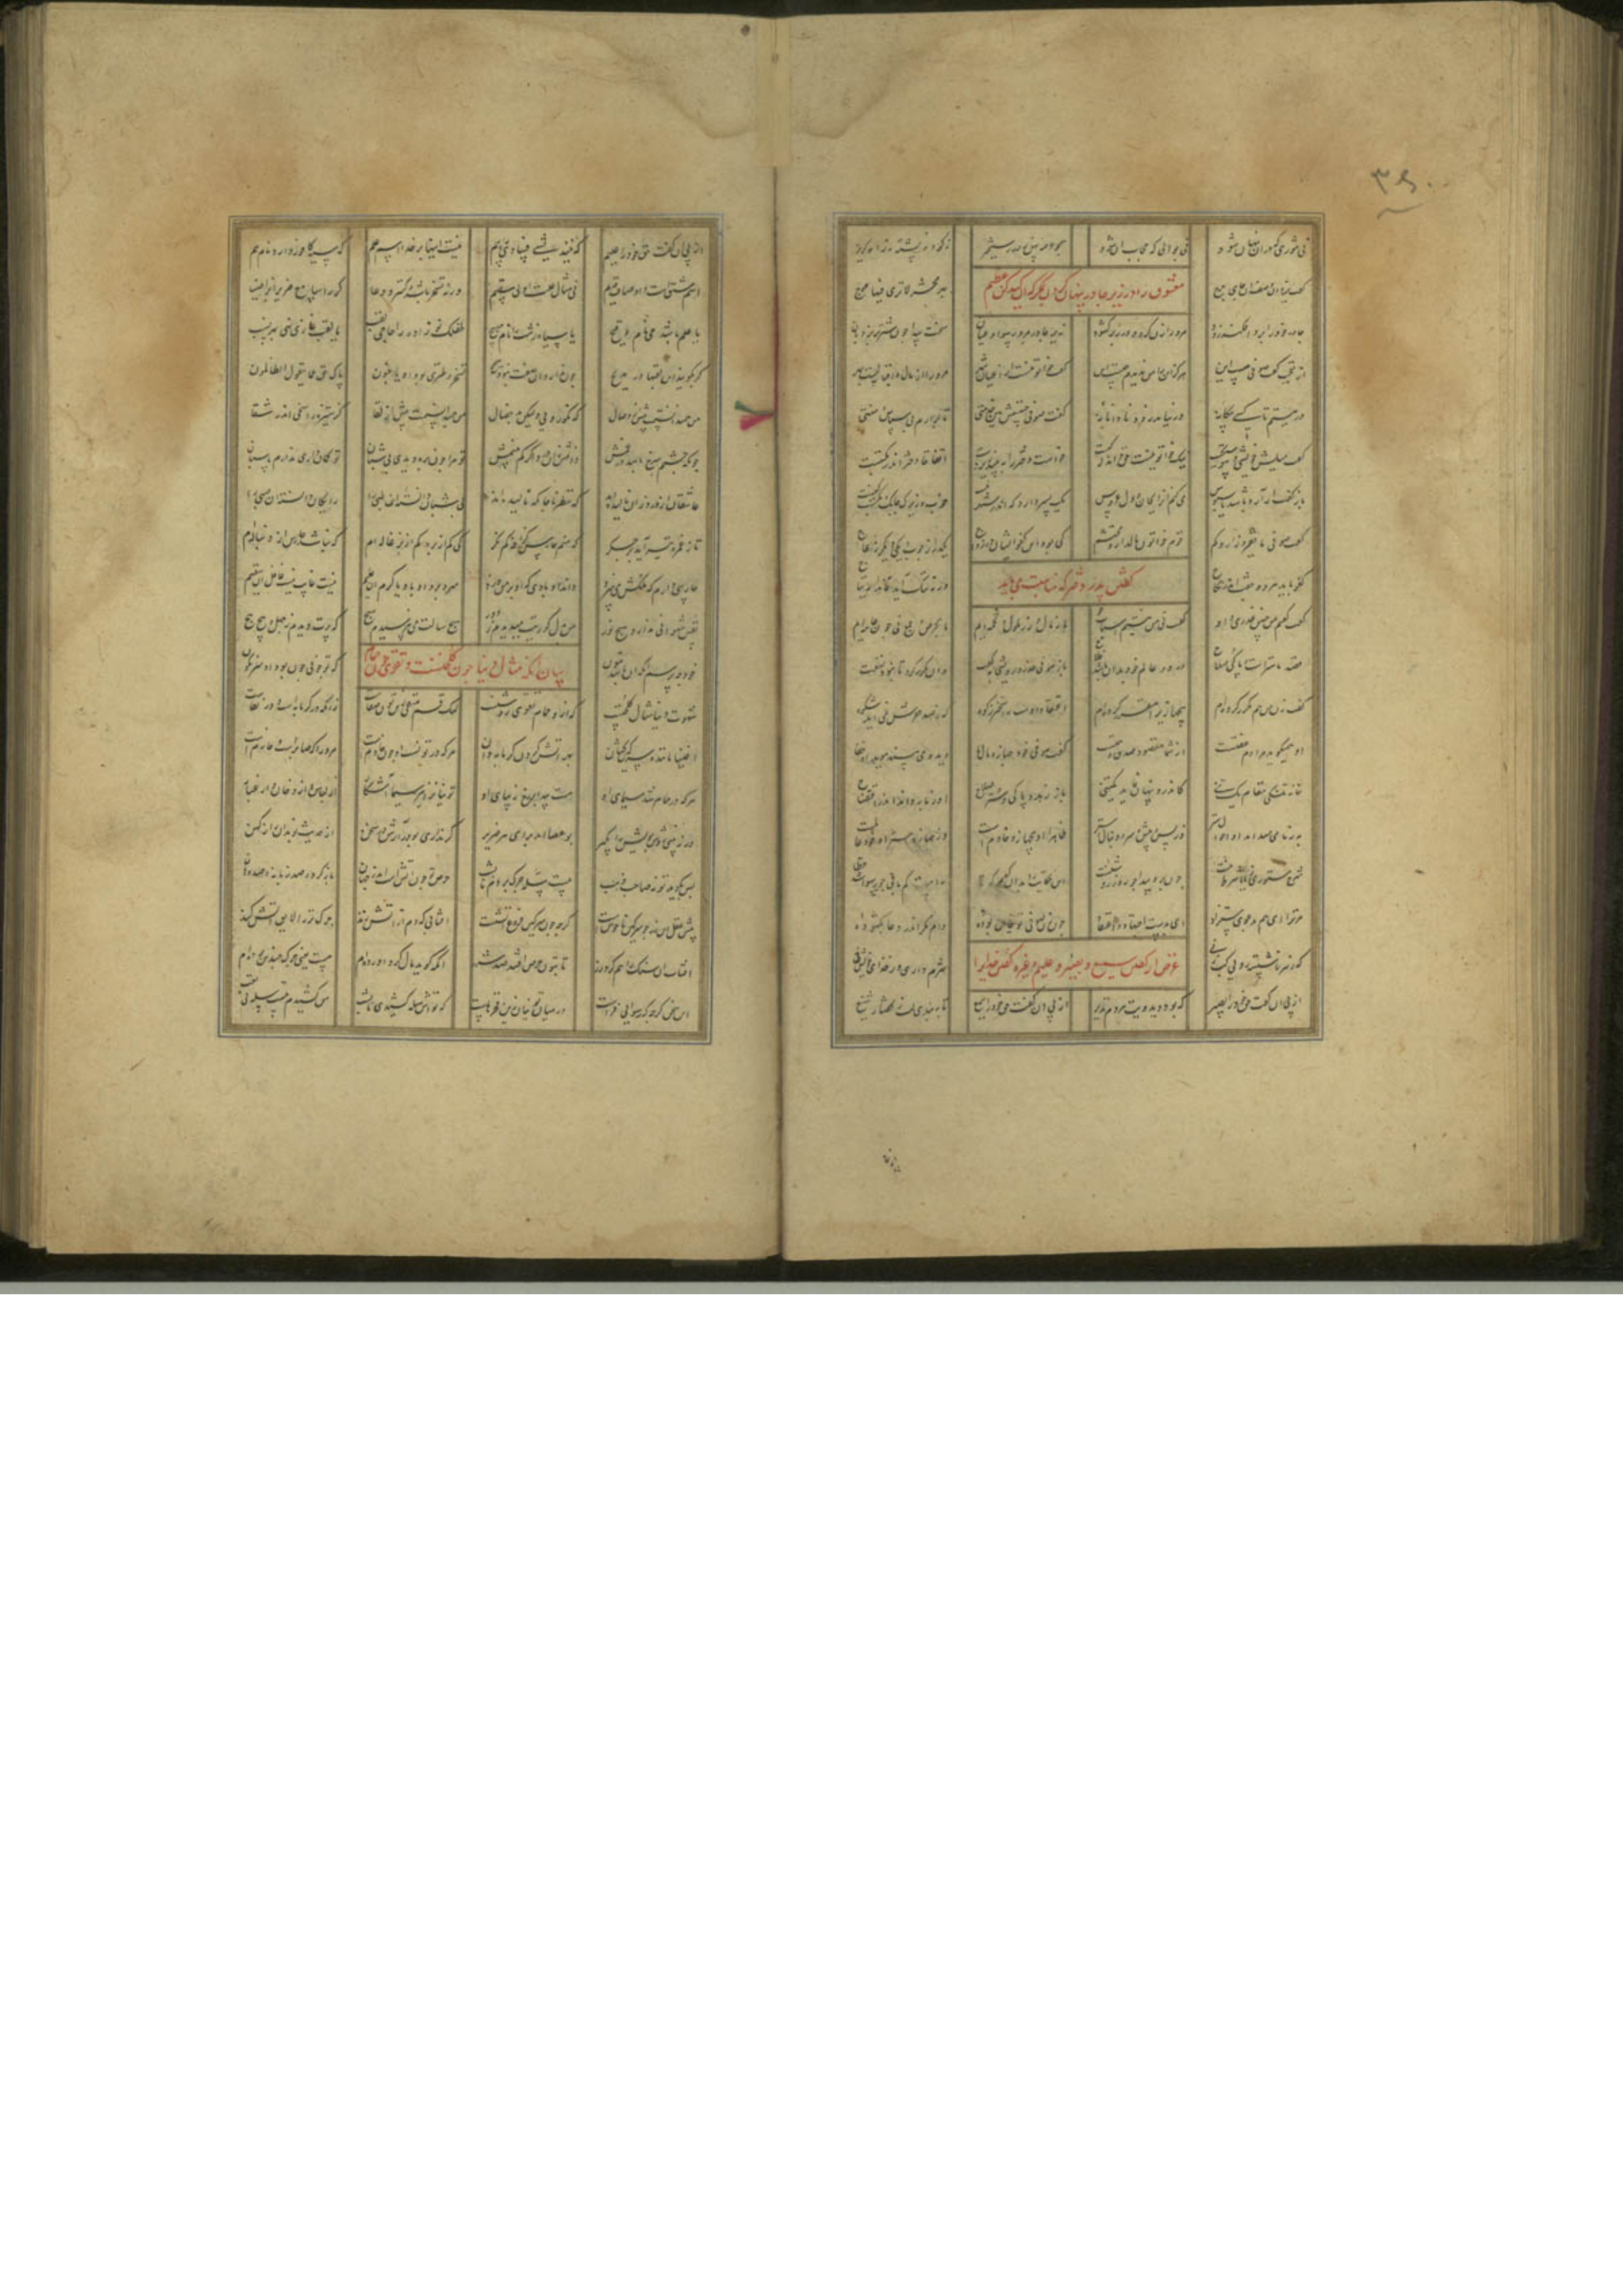 ۳۶۰
نی تنوری که در آن پنهان شود نی جوالی که حجاب آن شود همچو عرصه پهن روز رستخیز نه گو و نه پشته نه جای گریز
گفت یزدان وصف این جای حرج بهر محشر لا تری فیها عوج
معشوق را در زیر چادر پنهان کردن که ان کیدکن عظیم
چادر خود را برو افکند زود مرد را زن کرد و در را بر گشود زیر چادر مرد رسوا و عیان سخت پیدا چون شتر بر نردبان
از تعجب گفت صوفی چیست این هرگز این را من ندیدم کیست این گفت خاتونیست از اعیان شهر مر ورا از مال و اقبالست بهر
در ببستم تا کسی بیگانه در نیاید زود نادانانه گفت صوفی چیستش هین خدمتی تا برارم بی سپاس و منتی
گفت میلش خویشی و پیوستگیست نیک خاتونیست حق داند که کیست خواست دختر را ببیند اتفاقا دختر اندر مکتبست
باز گفت ار آرد باشد یا سبوس می کنم او را بجان و دل عروس یک پسر دارد که اندر شهر نیست خوب و زیرک چابک و مکسب کنیست
گفت صوفی ما فقیر و زار و کم قوم خاتون مالدار و محتشم کی بود این کفو ایشان در زواج یک در از چوب و دری دیگر ز عاج
کفو باید هر دو جفت اندر نکاح ورنه تنگ آید نماند ارتیاح
گفتن پدر دختر که مناسبت می باید
گفت گفتم من چنین عذری و او گفت نی من نیستم اسباب جو ما ز مال و زر ملول و تخمه ایم ما بحرص و جمع نی چون عامه ایم
قصد ما سترست و پاکی و صلاح در دو عالم خود بدان باشد فلاح باز صوفی عذر درویشی بگفت و آن مکرر کرد تا نبود نهفت
گفت زن من هم مکرر کرده ام بی جهازی را مقرر کرده ام اعتقاد اوست راسخ تر ز کوه که ز صد نمی آید شکوه
او همی گوید مرادم عفتست از شما مقصود صدق و همتست گفت صوفی خود جهاز و مال ما دید و می بیند هویدا و خفا
خانه تنگی مقام یک تنی کاندرو پنهان نماند سوزنی باز او ز ما به داند اندر انتصاح
به ز ما می داند او احوال ستر وز پس و پیش و سر و دنبال ستر ظاهرا او بی جهاز و خادمست وز
شرح مستوری ز بابا شرط نیست چون برو پیدا چو روز روشنیست این حکایت را بدان گفتم که تا لاف کم بافی چو رسوا شد خطا
مر ترا ای هم بدعوی مستزاد این بدستت اجتهاد و اعتقاد چون زن صوفی تو خاین بوده دام مکر اندر دغا بگشوده
که ز هر ناشسته رویی کپ زنی شرم داری وز خدای خویش نی
غرض از گفتن سمیع و بصیر و علیم و غیره گفتن خدایرا
از پی آن گفت حق خود را بصیر که بود دید ویت هر دم نذیر از پی آن گفت حق خود را سمیع تا ببندی لب ز گفتار شنیع
از پی آن گفت حق خود را علیم که نیندیشی فسادی تو ز بیم نیست اینها بر خدا اسم علم که سیه کافور دارد نام هم
اسم مشتقست و اوصاف قدیم نی مثال علت اولی سقیم ورنه تسخر باشد
یا علم باشد حیی نام وقیح یا سیاه زشت را نام صبیح طفلک نوزاده را حاجی لقب یا لقب غازی نهی بهر نسب
گر بگویند این لقبها در مدیح چون ندارد آن صفت نبود صحیح تسخر و طنزی بود آن یا جنون پاک حق عما یقول الظالمون
من همی دانستمت پیش از وصال که نکورویی ولیکن بدخصال من همی دانستمت پیش از لقا کز ستیزه راسخی اندر شقا
چونکه چشمم سرخ باشد دانمش زان درد اگر کم بینمش تو مرا چون بره دیدی بی شبان تو گمان بردی ندارم پاسبان
عاشقان از درد زان نالیده اند که نظر ناجایگه مالیده اند بی شبان دانسته اند آن ظبی را رایگان دانسته اند آن سبی را
تا ز غمزه تیر آمد بر جگر که منم حارس گزافه کم نگر کی کم از بره کم از بزغاله ام که نباشد حارس از دنباله ام
حارسی دارم که ملکش می سزد داند او بادی که آن بر من وزد سرد بود آن باد یا گرم آن علیم نیست غایب نیست غافل ای سقیم
نفس شهوانی ندارد هیچ نور من بدل کوریت می دیدم ز دور که پرت دیدم ز جهل پیچ پیچ
خود چه پرسم آنکه او باشد بتون که تو چونی چون بود او سرنگون
بیان آنکه مثال دنیا چون گلخنست و تقوی چون حمام
شهوت دنیا مثال گلخنست که ازو حمام تقوی روشنست لیک قسم متقی زین تون صفاست زانکه در گرمابه است و در نقاست
اغنیا ماننده سرگین کشان بهر آتش کردن گرمابه دان هر که در تونست او چون خادمست مر ورا که صابرست و حازمست
هر که در حمام شد سیمای او هست پیدا بر رخ زیبای او تونیان را نیز سیما آشکار از لباس و از دخان و از غبار
ور نبینی روش بویش را بگیر بو عصا آمد برای هر ضریر گر نداری بو درآرش در سخن از حدیث نو بدان راز کهن
پس بگوید تونی صاحب ذهب بیست سله چرک بردم تا بشب حرص تو چون آتشست اندر جهان باز کرده هر زبانه صد دهان
پیش عقل این زر چو سرگین ناخوشست گرچه چون سرگین فروغ آتشست آفتابی که دم از آتش زند چرک تر را لایق آتش کند
آفتاب آن سنگ را هم کرد زر تا بتون حرص افتد صد شرر آنکه گوید مال گرد آورده ام چیست یعنی چرک چندین برده ام
این سخن گرچه که رسوایی فزاست در میان تونیان زین فخرهاست که تو شش سله کشیدی تا بشب من کشیدم بیست سله بی